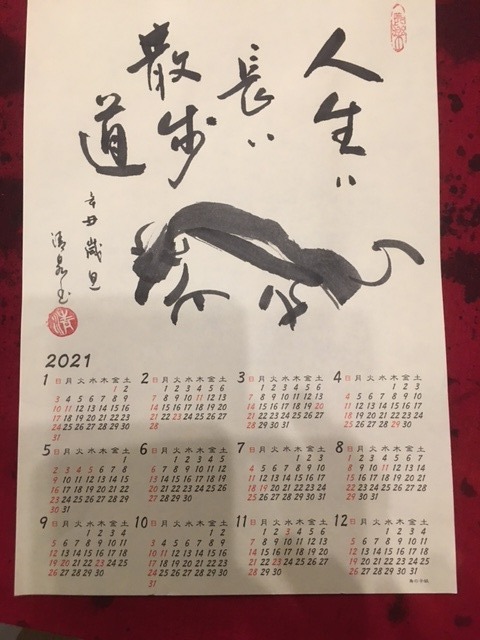 人生ハ
長い
散歩
道
辛丑歳旦
2021
1 日 月 火 水 木 金 土
1 2
3 4 5 6 7 8 9
10 11 12 13 14 15 16
17 18 19 20 21 22 23
24 25 26 27 28 29 30
31
2 日 月 火 水 木 金 土
1 2 3 4 5 6
7 8 9 10 11 12 13
14 15 16 17 18 19 20
21 22 23 24 25 26 27
28
3 日 月 火 水 木 金 土
1 2 3 4 5 6
7 8 9 10 11 12 13
14 15 16 17 18 19 20
21 22 23 24 25 26 27
28 29 30 31
4 日 月 火 水 木 金 土
1 2 3
4 5 6 7 8 9 10
11 12 13 14 15 16 17
18 19 20 21 22 23 24
25 26 27 28 29 30
5 日 月 火 水 木 金 土
1
2 3 4 5 6 7 8
9 10 11 12 13 14 15
16 17 18 19 20 21 22
23 24 25 26 27 28 29
30 31
6 日 月 火 水 木 金 土
1 2 3 4 5
6 7 8 9 10 11 12
13 14 15 16 17 18 19
20 21 22 23 24 25 26
27 28 29 30
7 日 月 火 水 木 金 土
1 2 3
4 5 6 7 8 9 10
11 12 13 14 15 16 17
18 19 20 21 22 23 24
25 26 27 28 29 30 31
8 日 月 火 水 木 金 土
1 2 3 4 5 6 7
8 9 10 11 12 13 14
15 16 17 18 19 20 21
22 23 24 25 26 27 28
29 30 31
9 日 月 火 水 木 金 土
1 2 3 4
5 6 7 8 9 10 11
12 13 14 15 16 17 18
19 20 21 22 23 24 25
26 27 28 29 30
10 日 月 火 水 木 金 土
1 2
3 4 5 6 7 8 9
10 11 12 13 14 15 16
17 18 19 20 21 22 23
24 25 26 27 28 29 30
31
11 日 月 火 水 木 金 土
1 2 3 4 5 6
7 8 9 10 11 12 13
14 15 16 17 18 19 20
21 22 23 24 25 26 27
28 29 30
12 日 月 火 水 木 金 土
1 2 3 4
5 6 7 8 9 10 11
12 13 14 15 16 17 18
19 20 21 22 23 24 25
26 27 28 29 30 31